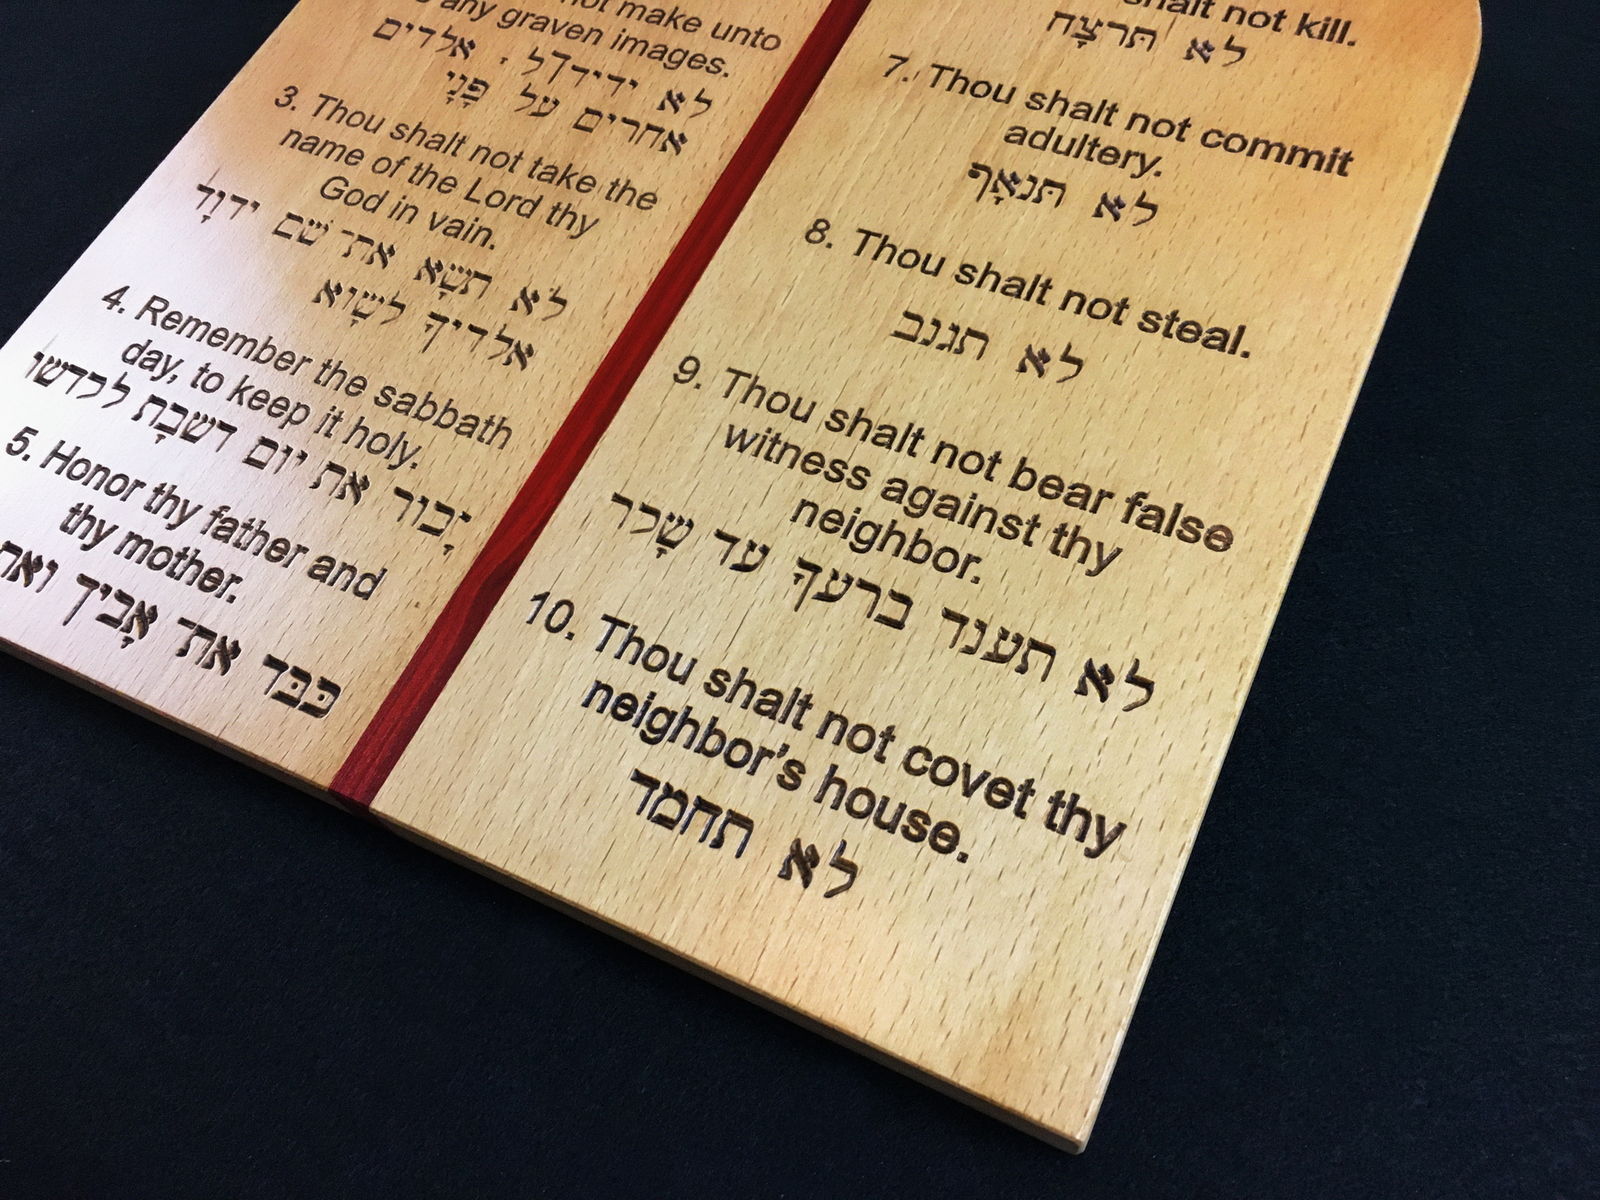 not make unto
any graven images.
לא ידידךל אלדים
אחרים על פָּנָי
3. Thou shalt not take the
name of the Lord thy
God in vain.
לא תשָא את־שם ידוָד
אלדיךָ לשָוא
4. Remember the sabbath
day, to keep it holy.
יָכור את יום דשבָת לכדשו
5. Honor thy father and
thy mother.
כבד את־ אָביך ואת
shalt not kill.
לא תרצָח
7. Thou shalt not commit
adultery.
לא תנאָף
8. Thou shalt not steal.
לא תגנב
9. Thou shalt not bear false
witness against thy
neighbor.
לא תענד ברעךָ עד שָכר
10. Thou shalt not covet thy
neighbor's house.
לא תחמד